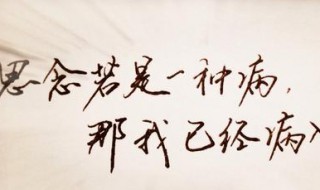 思念若是一种病,
那我已经病入